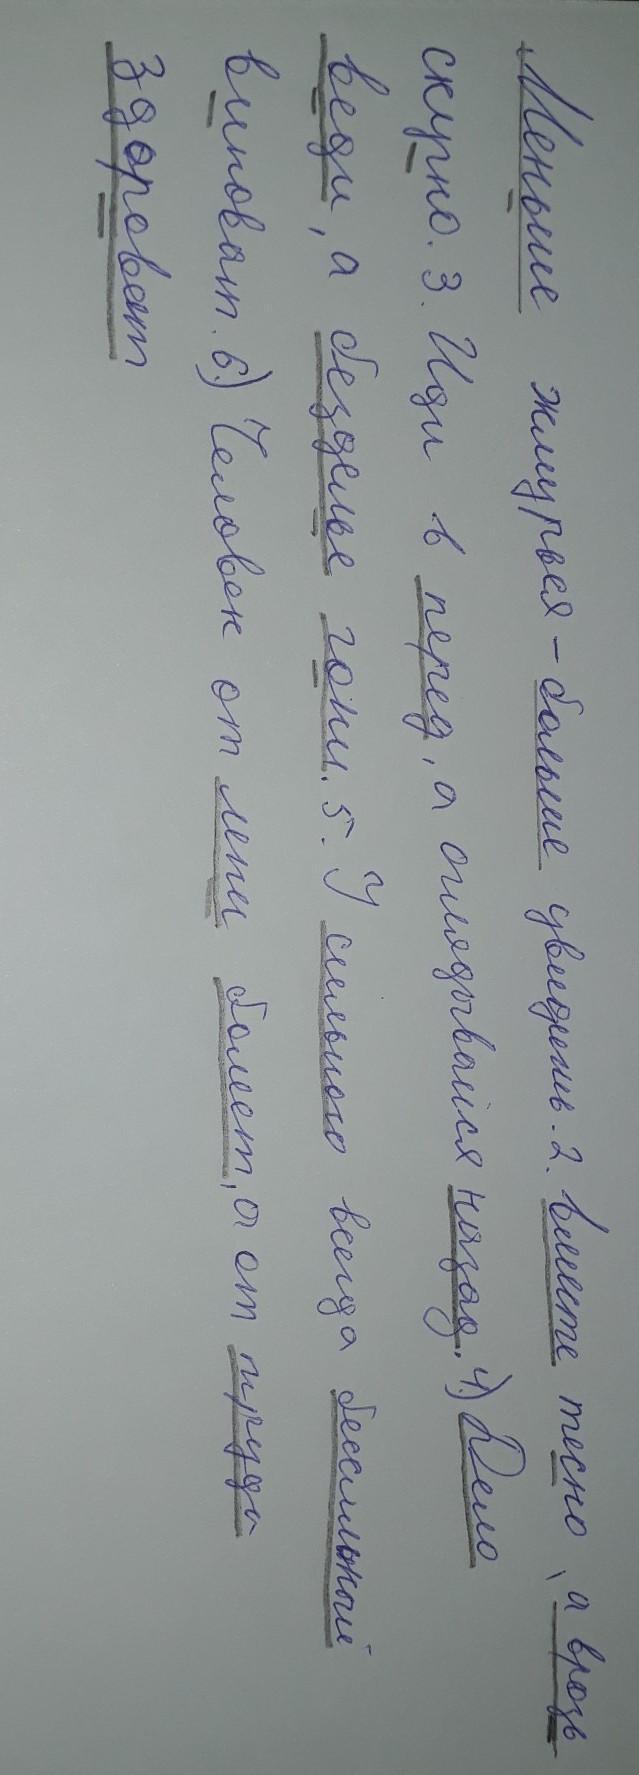 Меньше жмурься - больше увидишь. 2. Вместе тесно, а врозь
скучно. 3. Иди в перед, а оглядывайся назад. 4.) Дело
веди, а безделье гони. 5. У сильного всегда бессильный
виноват. 6.) Человек от лени болеет, а от труда
здоровеет